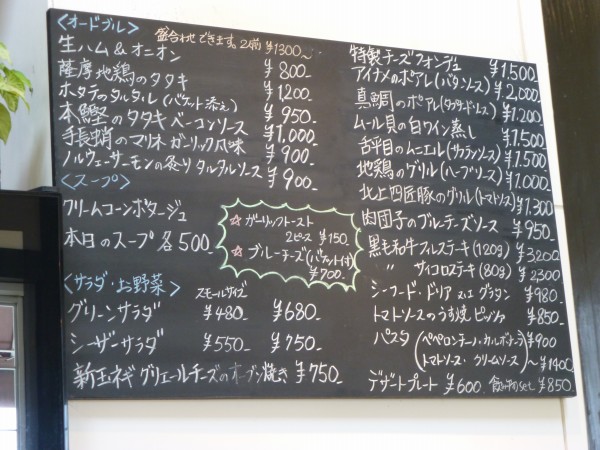 <オードブル> 盛合わせできます。2人前 ¥1300〜
生ハム&オニオン ¥800-
薩摩地鶏のタタキ ¥1,200-
ホタテのタルタル(バケット添え) ¥950-
本鰹のタタキ ベーコンソース ¥1,000-
手長蛸のマリネ ガーリック風味 ¥900-
ノルウェーサーモンの炙り タルタルソース ¥900-
<スープ>
クリームコーンポタージュ
本日のスープ 各500-
☆ガーリックトースト
2ピース ¥150-
☆ブルーチーズ(バケット付)
¥700-
<サラダ・お野菜>
スモールサイズ
グリーンサラダ ¥480- ¥680-
シーザーサラダ ¥550- ¥750-
新玉ネギ グリエールチーズのオーブン焼き ¥750-
特製チーズフォンデュ ¥1,500-
アイナメのポアレ(バタソース) ¥2,000-
真鯛のポアレ ¥1,200
ムール貝の白ワイン蒸し ¥1,500-
舌平目のムニエル(サフランソース) ¥1,500
地鶏のグリル(ハーブソース) ¥1,000-
北上四匠豚のグリル(トマトソース) ¥1,300
肉団子のブルーチーズソース ¥950-
黒毛和牛フィレステーキ(120g) ¥3200
〃 サイコロステーキ(80g) ¥2300
シーフード・ドリア 又は グラタン ¥980-
トマトソースのうす焼ピッツァ ¥850-
パスタ(ペペロンチーノ・カルボナーラ ¥900
トマトソース・クリームソース)〜¥1400
デザートプレート ¥600- 飲み物set ¥850